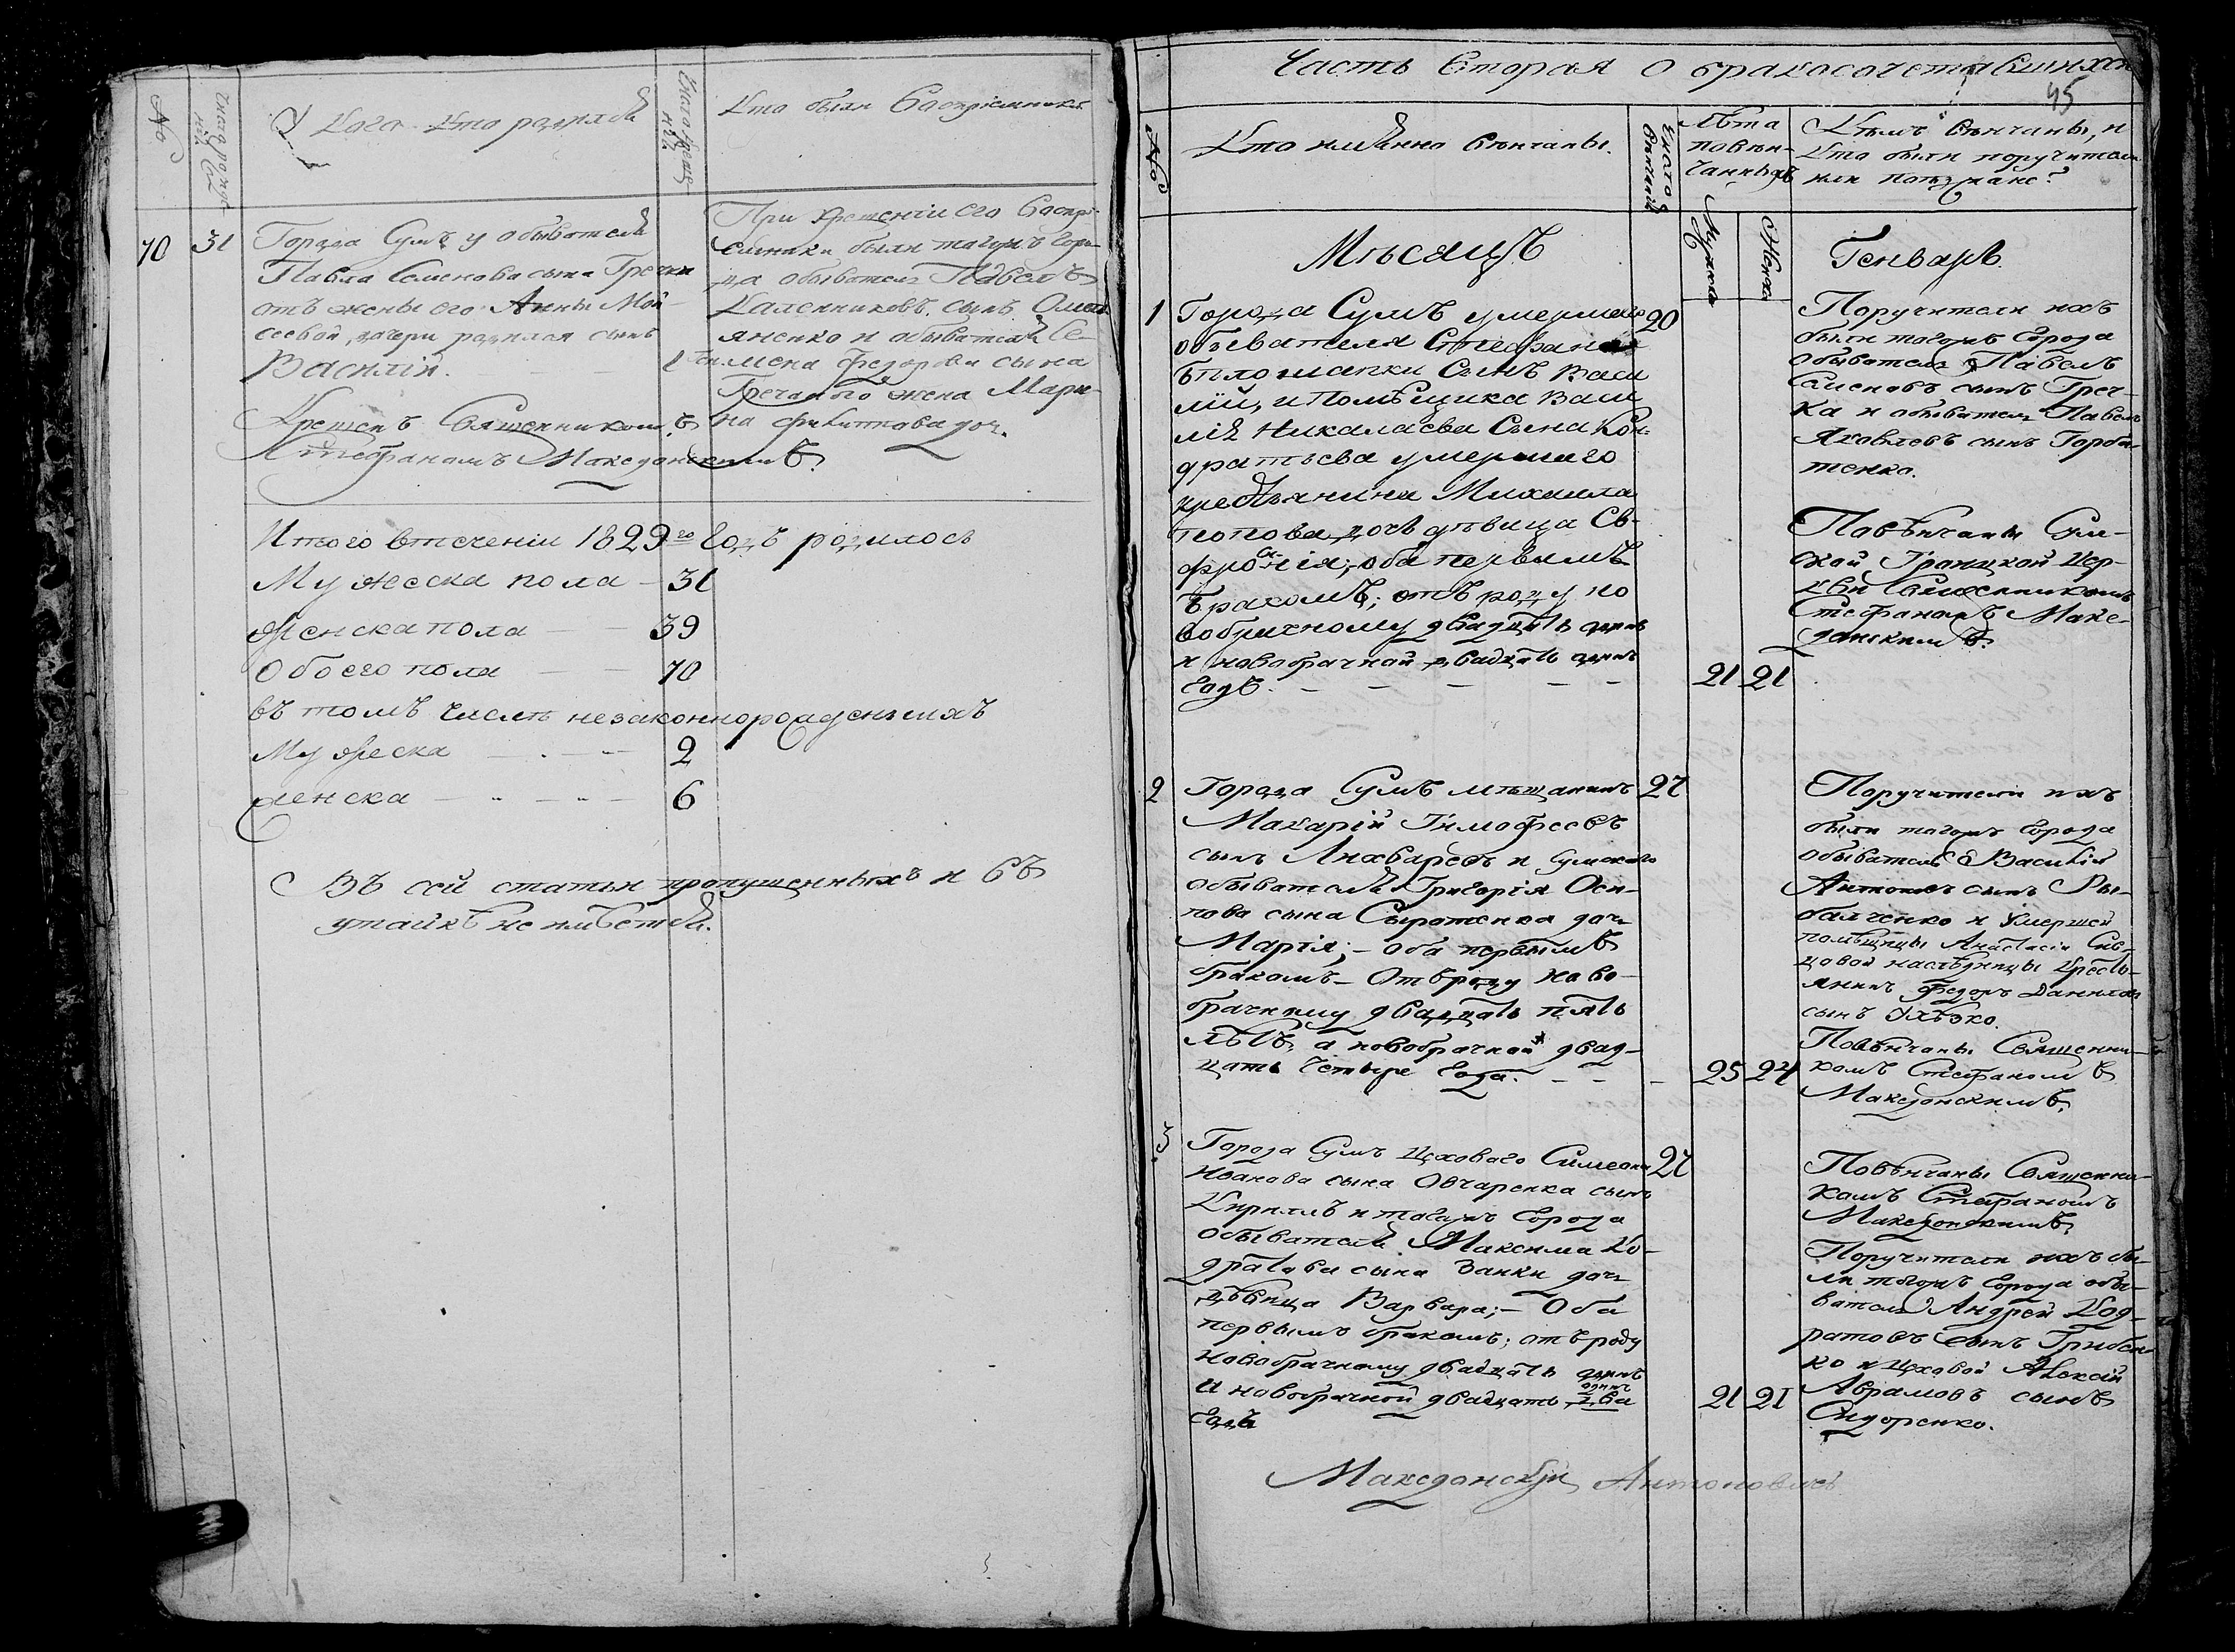 №
Число рожде-
ній
У Кого Кто родился
Число креще-
нія
Кто были Воспріемники
70
31
Города Сумъ у обывателя
Павла Семенова сына Гречки
отъ жены его Анны Мой-
сеевой дочери родился сынъ
Василій. — — —
1
Крещенъ Священникомъ
Стефаномъ Македонскимъ
При крещеніи его Воспрі-
емники были тогожъ Горо-
да обыватель Павелъ
Каленниковъ сынъ Омель-
яненко и обывателя Се-
мена Федорова сына
Гречаного жена Мари-
на Филиппова доч.
Итого втеченіи 1829го Годъ родилось
Мужеска пола — 31
Женска пола — — 39
Обоего пола — — 70
въ томъ числѣ незаконнорожденныхъ
Мужеска — . — — 2
женска — — — — 6
Въ сей статьи пропущенныхъ и въ
утайкѣ не имѣется.
Часть Вторая о бракосочетавшихся
45
№
Кто имянно Вѣнчаны.
Число
Вѣнчаній
Лѣта
повѣн-
чанныхъ
Мужска
Женска
Кѣмъ Вѣнчаны, и
Кто были поручители
или поезжане?
Мѣсяцъ
Генварь.
1
Города Сумъ умершаго
обывателя Стефана
Бѣлошапки Сынъ Васи
лій, и Помѣщика Васи
лія Николаева Сына Кон-
дратьева умершаго
крестьянина Михаила
попова дочь дѣвица Св-
фросинія; оба первымъ
бракомъ; отъ роду но
вобрачному двадцать одинъ
и новобрачной двадцать одинъ
Годъ. — — — — —
20
21
21
Поручители ихъ
были тогожъ Города
обыватель Павелъ
Семеновъ сынъ Греч-
ка и обыватель Павелъ
Яковлевъ сынъ Горба-
тенко.
Повѣнчаны Сум-
ской Троицкой Цер-
кви Священникомъ
Стефаномъ Маке-
донскимъ.
2
Города Сумъ мѣщанинъ
Макарій Тимофеевъ
сынъ Лихваревъ и Сумскаго
обывателя Григорія Оси-
пова сына Сыротенка дочь
Марія; — оба первымъ
бракомъ — Отъ роду ново-
брачному двадцать пять
лѣтъ, а новобрачной двад-
цать четыре Года. — — —
27
25
24
Поручители ихъ
были тогожъ Города
обыватель Василій
Антоновъ сынъ Ры-
балченко и умершей
помѣщицы Анастасіи
наслѣдницы Кресть-
янинъ Федоръ Даниловъ
сынъ
Повѣнчаны Священни-
комъ Стефаномъ
Македонскимъ.
3
Города Сумъ Цеховаго Симеона
Иванова сына Овчаренка сынъ
Кириллъ и тогожъ Города
обывателя Максима Ко-
дратова сына Занки дочь
дѣвица Варвара; — Оба
первымъ бракомъ; отъ роду
новобрачному двадцать одинъ
одинъ
и новобрачной двадцать два
Годъ
27
21
21
Повѣнчаны Священни-
комъ Стефаномъ
Македонскимъ
Поручители ихъ бы-
ли тогожъ Города обы-
ватель Андрей Код-
ратовъ сынъ Грибен-
ко и Цеховой Алексій
Аврамовъ сынъ
Сидоренко.
Македонскій Антоновичъ